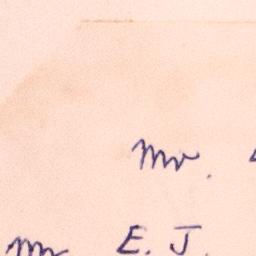 Mr.
Mr E. J.